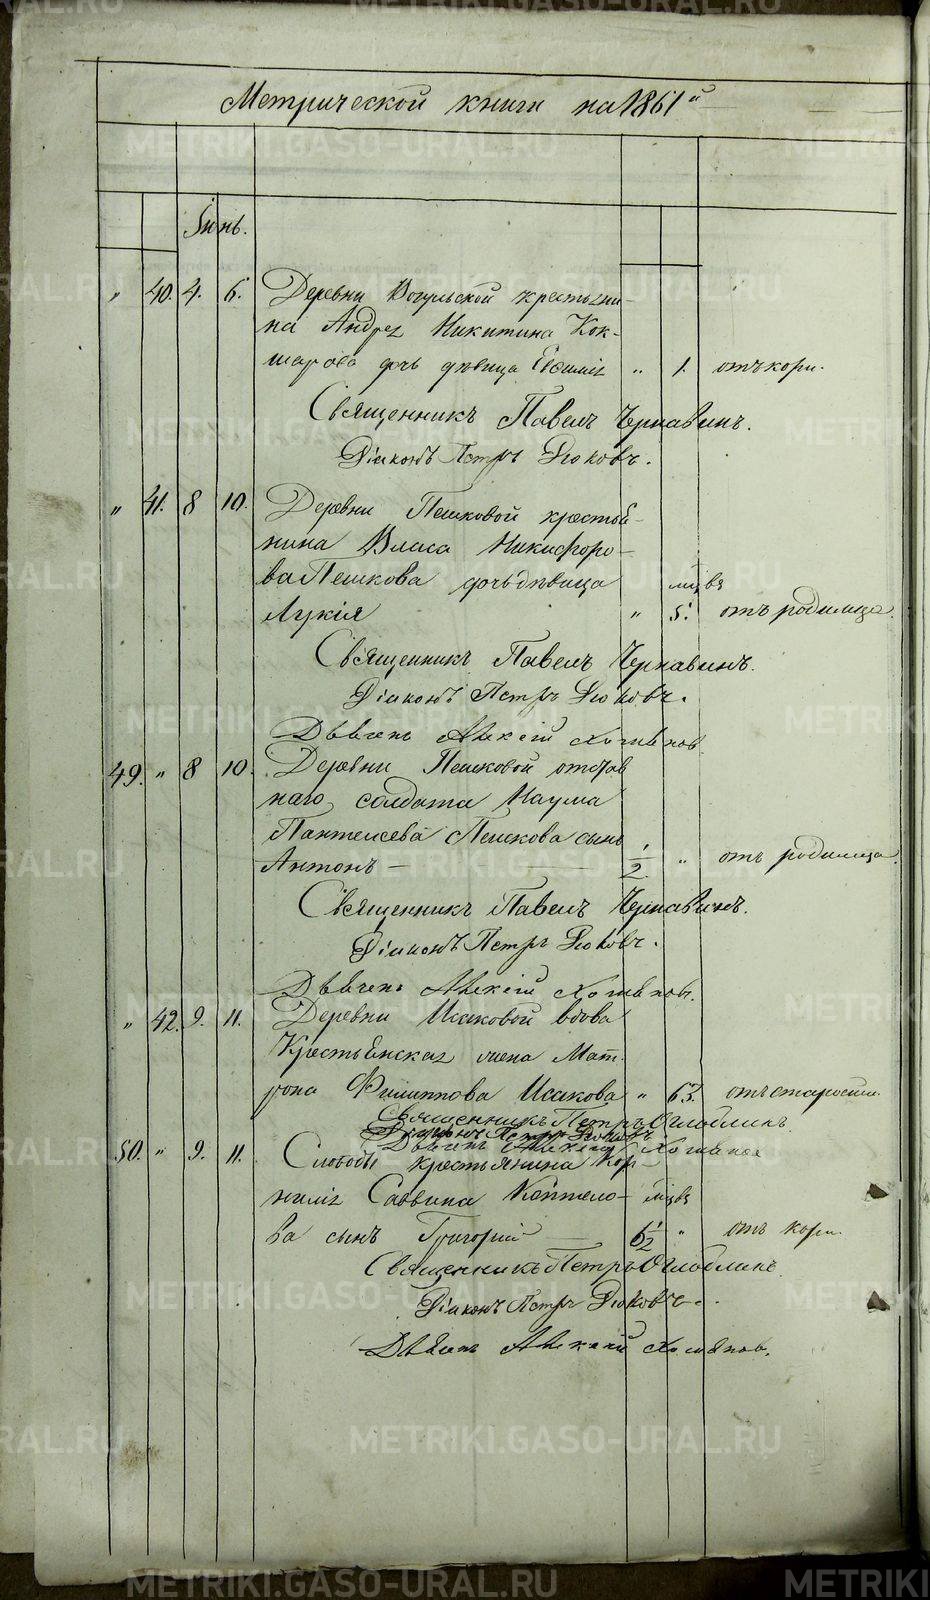 Метрической книги на 1861й
Іюнь.
" 40. 4. 6. Деревни Вогульской крестьяни-
на Андрея Никитина Кок-
шарова дочь дѣвица Евфимія " 1. отъ кори.
Священникъ Павелъ Чернавинъ.
Діаконъ Петръ Дюковъ.
" 41. 8 10. Деревни Пешковой крестья-
нина Власа Никифоро-
ва Пешкова дочь дѣвица
Лукія " 5. отъ родимца.
Священникъ Павелъ Чернавинъ.
Діаконъ Петръ Дюковъ.
Алексій
49. " 8 10. Деревни Пешковой отстав
наго солдата Наума
Пантелеева Пешкова сынъ
Антонъ — 1/2 " отъ родимца.
Священникъ Павелъ Чернавинъ.
Діаконъ Петръ Дюковъ.
Алексій
" 42. 9. 11. Деревни Исаковой вдова
Крестьянская жена Мат-
рона Филиппова Исакова " 63. отъ старости.
Священникъ Петръ Оглоблинъ.
Діаконъ Петръ Дюковъ
50. " 9. 11. Слободы крестьянина Кор-
нилія Саввина Коптело-
ва сынъ Григорій — 6 1/2 " отъ кори.
Священникъ Петръ Оглоблинъ
Діаконъ Петръ Дюковъ.
Алексій
METRIKI.GASO-URAL.RU